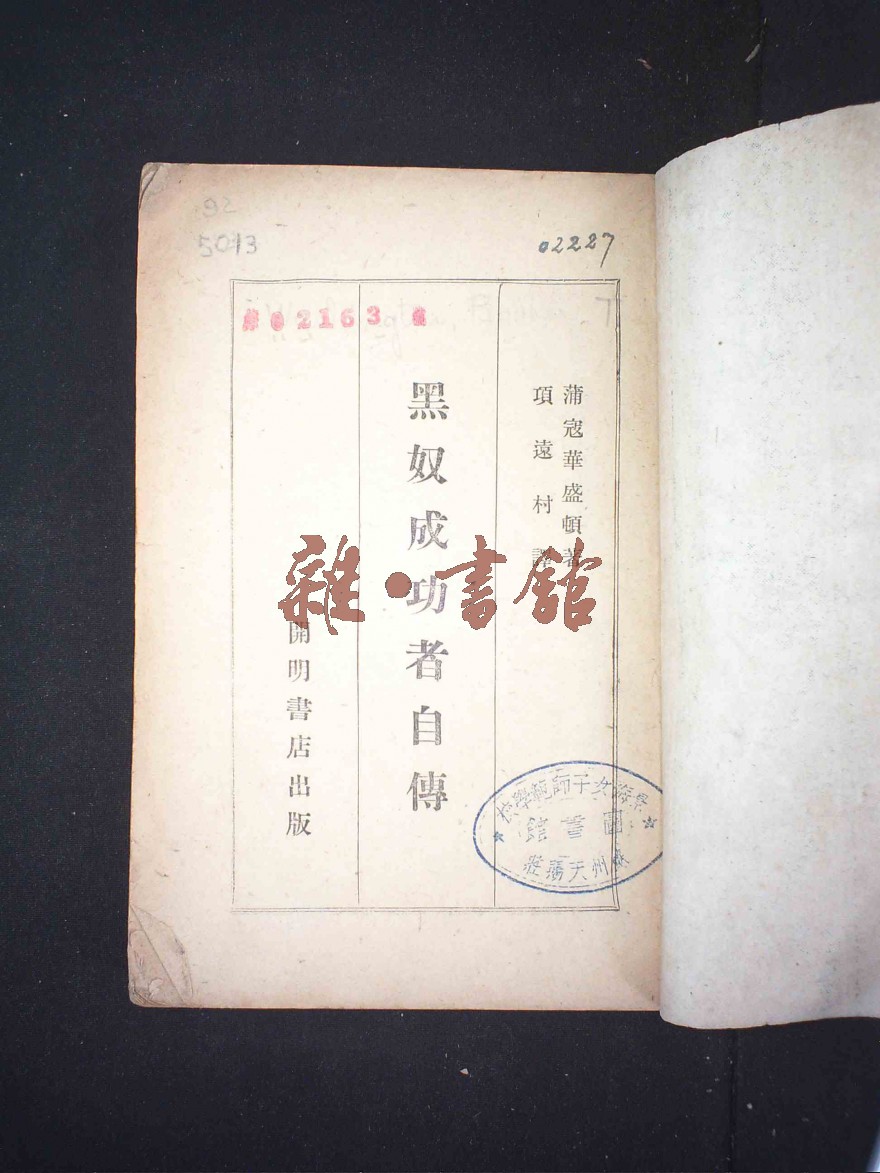 92
5013
02227
02163
蒲寇華盛頓著
項遠村譯
黑奴成功者自傳
開明書店出版
雜·書館
景海女子師範學校
圖書館
蘇州天賜莊